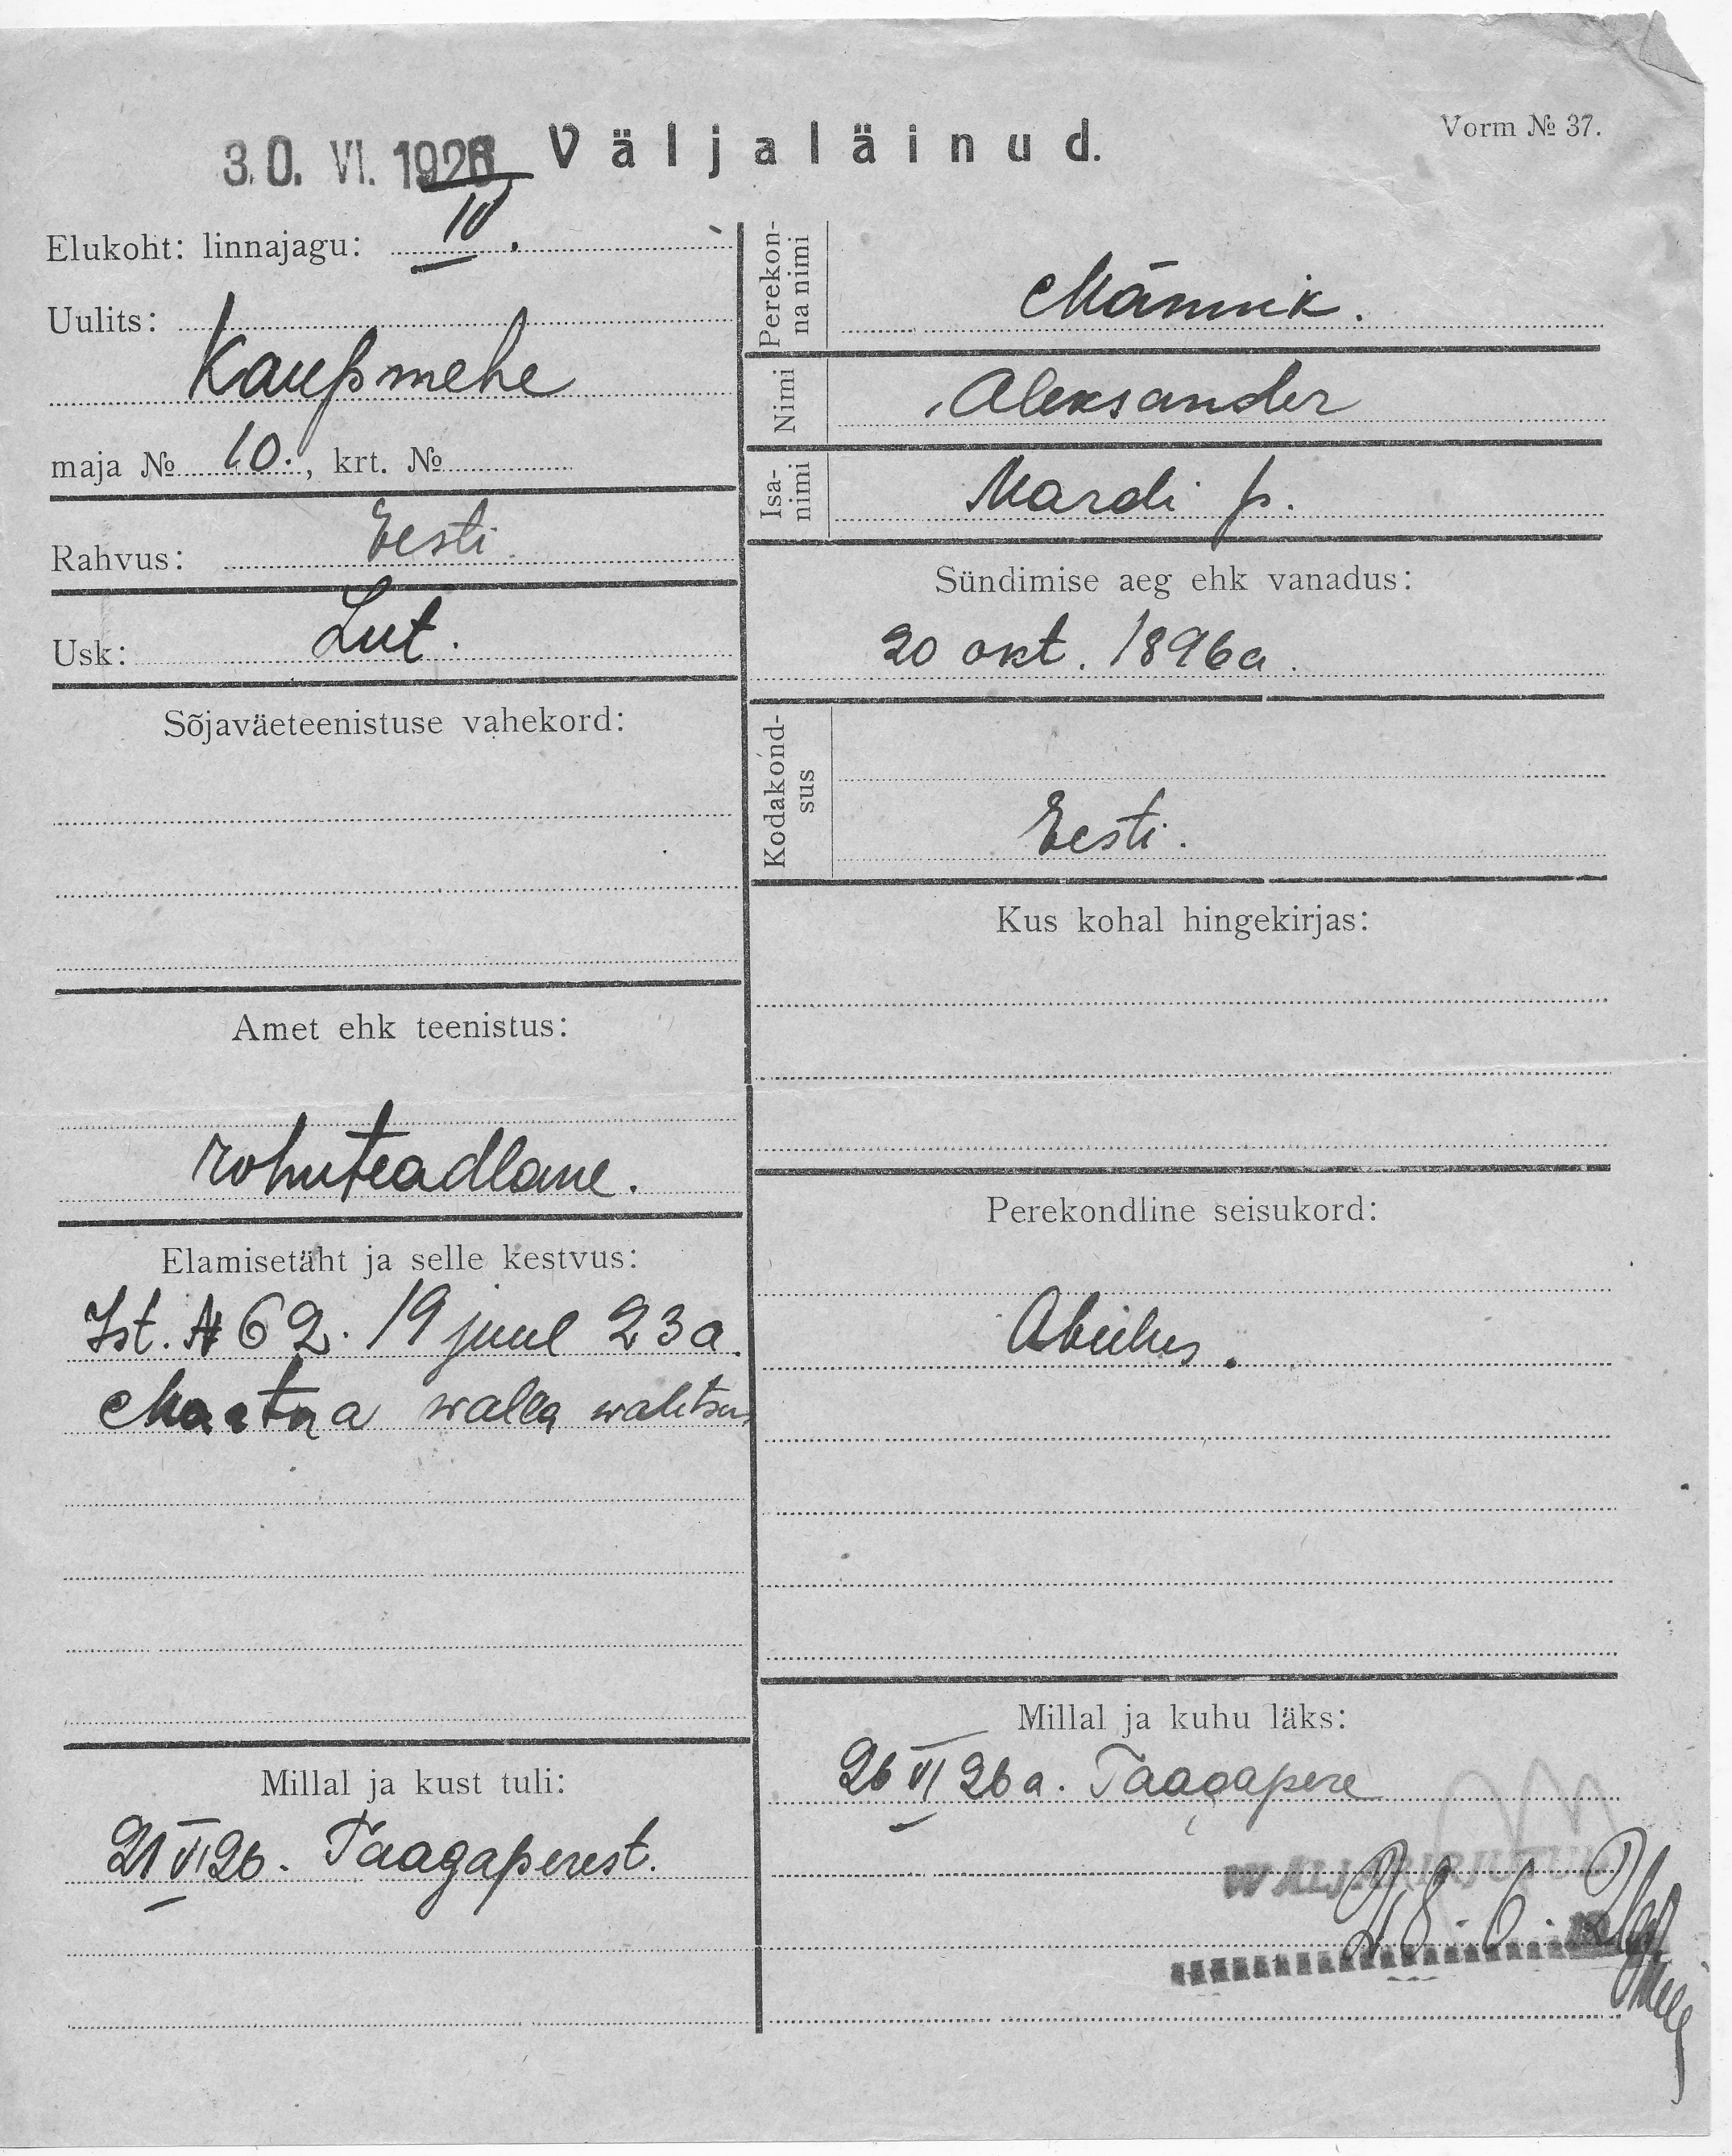 Vorm № 37.
30. VI. 1926 Väljaläinud.
Elukoht: linnajagu: IV.
Uulits:
Kaupmehe
maja № 10., krt. №
Rahvus: Eesti
Usk: Lut.
Sõjaväeteenistuse vahekord:
Amet ehk teenistus:
rohuteadlane.
Elamisetäht ja selle kestvus:
Ist. № 62. 19 juul 23a.
Martna walla walitsus
Millal ja kust tuli:
21 VI 26. Taagaperest.
Perekonna nimi
Männik.
Nimi
Aleksander
Isanimi
Mardi p.
Sündimise aeg ehk vanadus:
20 okt. 1896a.
Kodakondsus
Eesti.
Kus kohal hingekirjas:
Perekondline seisukord:
Abielus.
Millal ja kuhu läks:
26 VI 26 a. Taagapere
WÄLJAKIRJUTUD